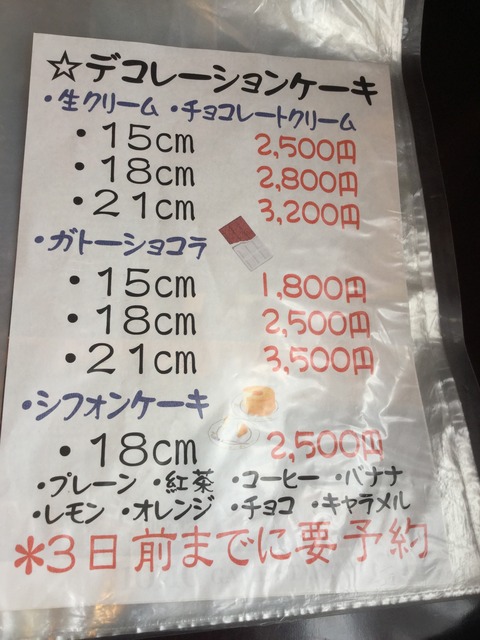 ☆デコレーションケーキ
・生クリーム ・チョコレートクリーム
・15cm 2,500円
・18cm 2,800円
・21cm 3,200円
・ガトーショコラ
・15cm 1,800円
・18cm 2,500円
・21cm 3,500円
・シフォンケーキ
・18cm 2,500円
・プレーン ・紅茶 ・コーヒー ・バナナ
・レモン ・オレンジ ・チョコ ・キャラメル
*3日前までに要予約